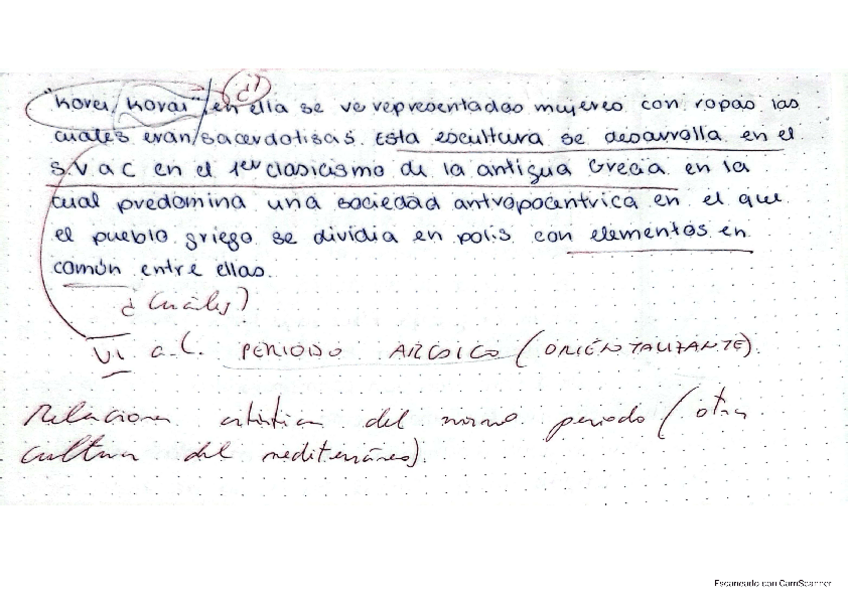 ¿?
"Korei/Korai"/en ella se ve representadas mujeres con ropas las
cuales eran/sacerdotisas. Esta escultura se desarrolla en el
S.V a C en el 1er clasicismo de la antigua Grecia en la
cual predomina una sociedad antropocentrica en el que
el pueblo griego se dividia en polis con elementos en
común entre ellas.
¿Cuáles?
VI a.C. PERIODO ARCAICO (ORIENTALIZANTE).
Relaciona artística del mismo periodo (otra
cultura del mediterráneo).
Escaneado con CamScanner